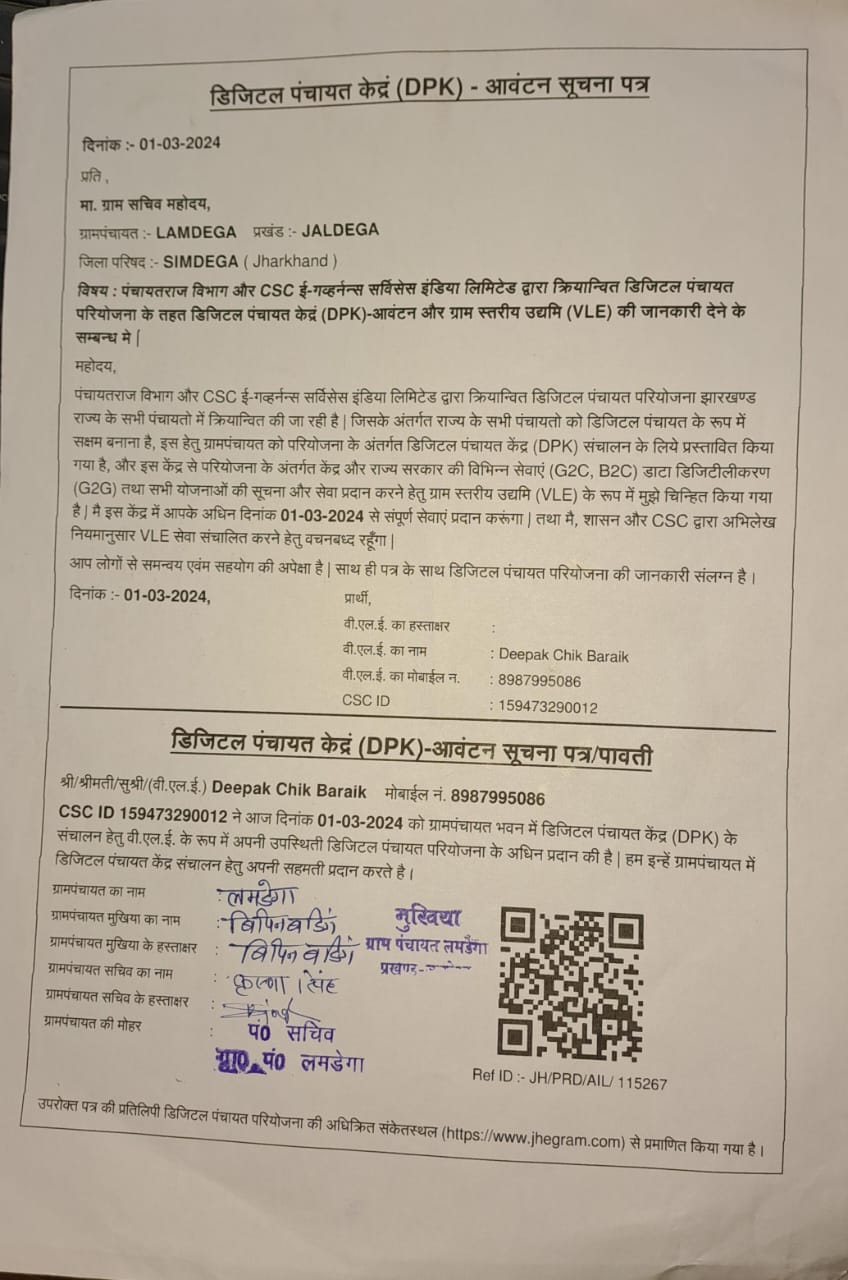 डिजिटल पंचायत केद्रं (DPK) - आवंटन सूचना पत्र
दिनांक :- 01-03-2024
प्रति ,
मा. ग्राम सचिव महोदय,
ग्रामपंचायत :- LAMDEGA प्रखंड :- JALDEGA
जिला परिषद :- SIMDEGA ( Jharkhand )
विषय : पंचायतराज विभाग और CSC ई-गव्हर्नन्स सर्विसेस इंडिया लिमिटेड द्वारा क्रियान्वित डिजिटल पंचायत
परियोजना के तहत डिजिटल पंचायत केद्रं (DPK)-आवंटन और ग्राम स्तरीय उद्यमि (VLE) की जानकारी देने के
सम्बन्ध मे |
महोदय,
पंचायतराज विभाग और CSC ई-गव्हर्नन्स सर्विसेस इंडिया लिमिटेड द्वारा क्रियान्वित डिजिटल पंचायत परियोजना झारखण्ड
राज्य के सभी पंचायतो में क्रियान्वित की जा रही है | जिसके अंतर्गत राज्य के सभी पंचायतो को डिजिटल पंचायत के रूप में
सक्षम बनाना है, इस हेतु ग्रामपंचायत को परियोजना के अंतर्गत डिजिटल पंचायत केंद्र (DPK) संचालन के लिये प्रस्तावित किया
गया है, और इस केंद्र से परियोजना के अंतर्गत केंद्र और राज्य सरकार की विभिन्न सेवाएं (G2C, B2C) डाटा डिजिटीलीकरण
(G2G) तथा सभी योजनाओं की सूचना और सेवा प्रदान करने हेतु ग्राम स्तरीय उद्यमि (VLE) के रूप में मुझे चिन्हित किया गया
है | मै इस केंद्र में आपके अधिन दिनांक 01-03-2024 से संपूर्ण सेवाएं प्रदान करूंगा | तथा मै, शासन और CSC द्वारा अभिलेख
नियमानुसार VLE सेवा संचालित करने हेतु वचनबध्द रहूँगा |
आप लोगों से समन्वय एवंम सहयोग की अपेक्षा है | साथ ही पत्र के साथ डिजिटल पंचायत परियोजना की जानकारी संलग्न है ।
दिनांक :- 01-03-2024, प्रार्थी,
वी.एल.ई. का हस्ताक्षर :
वी.एल.ई. का नाम : Deepak Chik Baraik
वी.एल.ई. का मोबाईल न. : 8987995086
CSC ID : 159473290012
डिजिटल पंचायत केद्रं (DPK)-आवंटन सूचना पत्र/पावती
श्री/श्रीमती/सुश्री/(वी.एल.ई.) Deepak Chik Baraik मोबाईल नं. 8987995086
CSC ID 159473290012 ने आज दिनांक 01-03-2024 को ग्रामपंचायत भवन में डिजिटल पंचायत केंद्र (DPK) के
संचालन हेतु वी.एल.ई. के रूप में अपनी उपस्थिती डिजिटल पंचायत परियोजना के अधिन प्रदान की है | हम इन्हें ग्रामपंचायत में
डिजिटल पंचायत केंद्र संचालन हेतु अपनी सहमती प्रदान करते है ।
ग्रामपंचायत का नाम : लमडेगा
ग्रामपंचायत मुखिया का नाम : बिपिन बडिंग मुखिया
ग्रामपंचायत मुखिया के हस्ताक्षर : बिपिन बडिंग ग्राम पंचायत लमडेगा
ग्रामपंचायत सचिव का नाम : कृष्णा सिंह प्रखण्ड-
ग्रामपंचायत सचिव के हस्ताक्षर :
ग्रामपंचायत की मोहर : पं० सचिव
ग्रा०. पं० लमडेगा
Ref ID :- JH/PRD/AIL/ 115267
उपरोक्त पत्र की प्रतिलिपी डिजिटल पंचायत परियोजना की अधिक्रित संकेतस्थल (https://www.jhegram.com) से प्रमाणित किया गया है ।